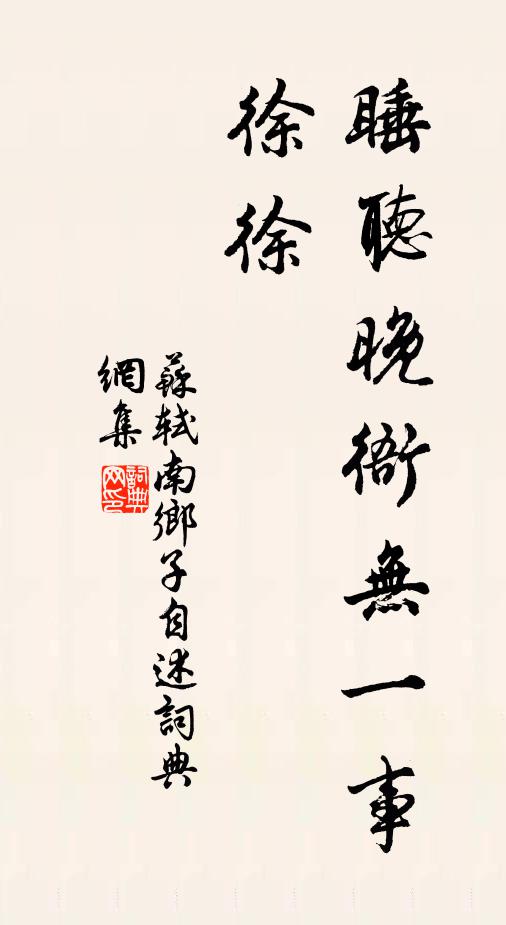 睡聽晚衙無一事
徐徐
蘇軾南鄉子自述詞典
網集
詞典
网印